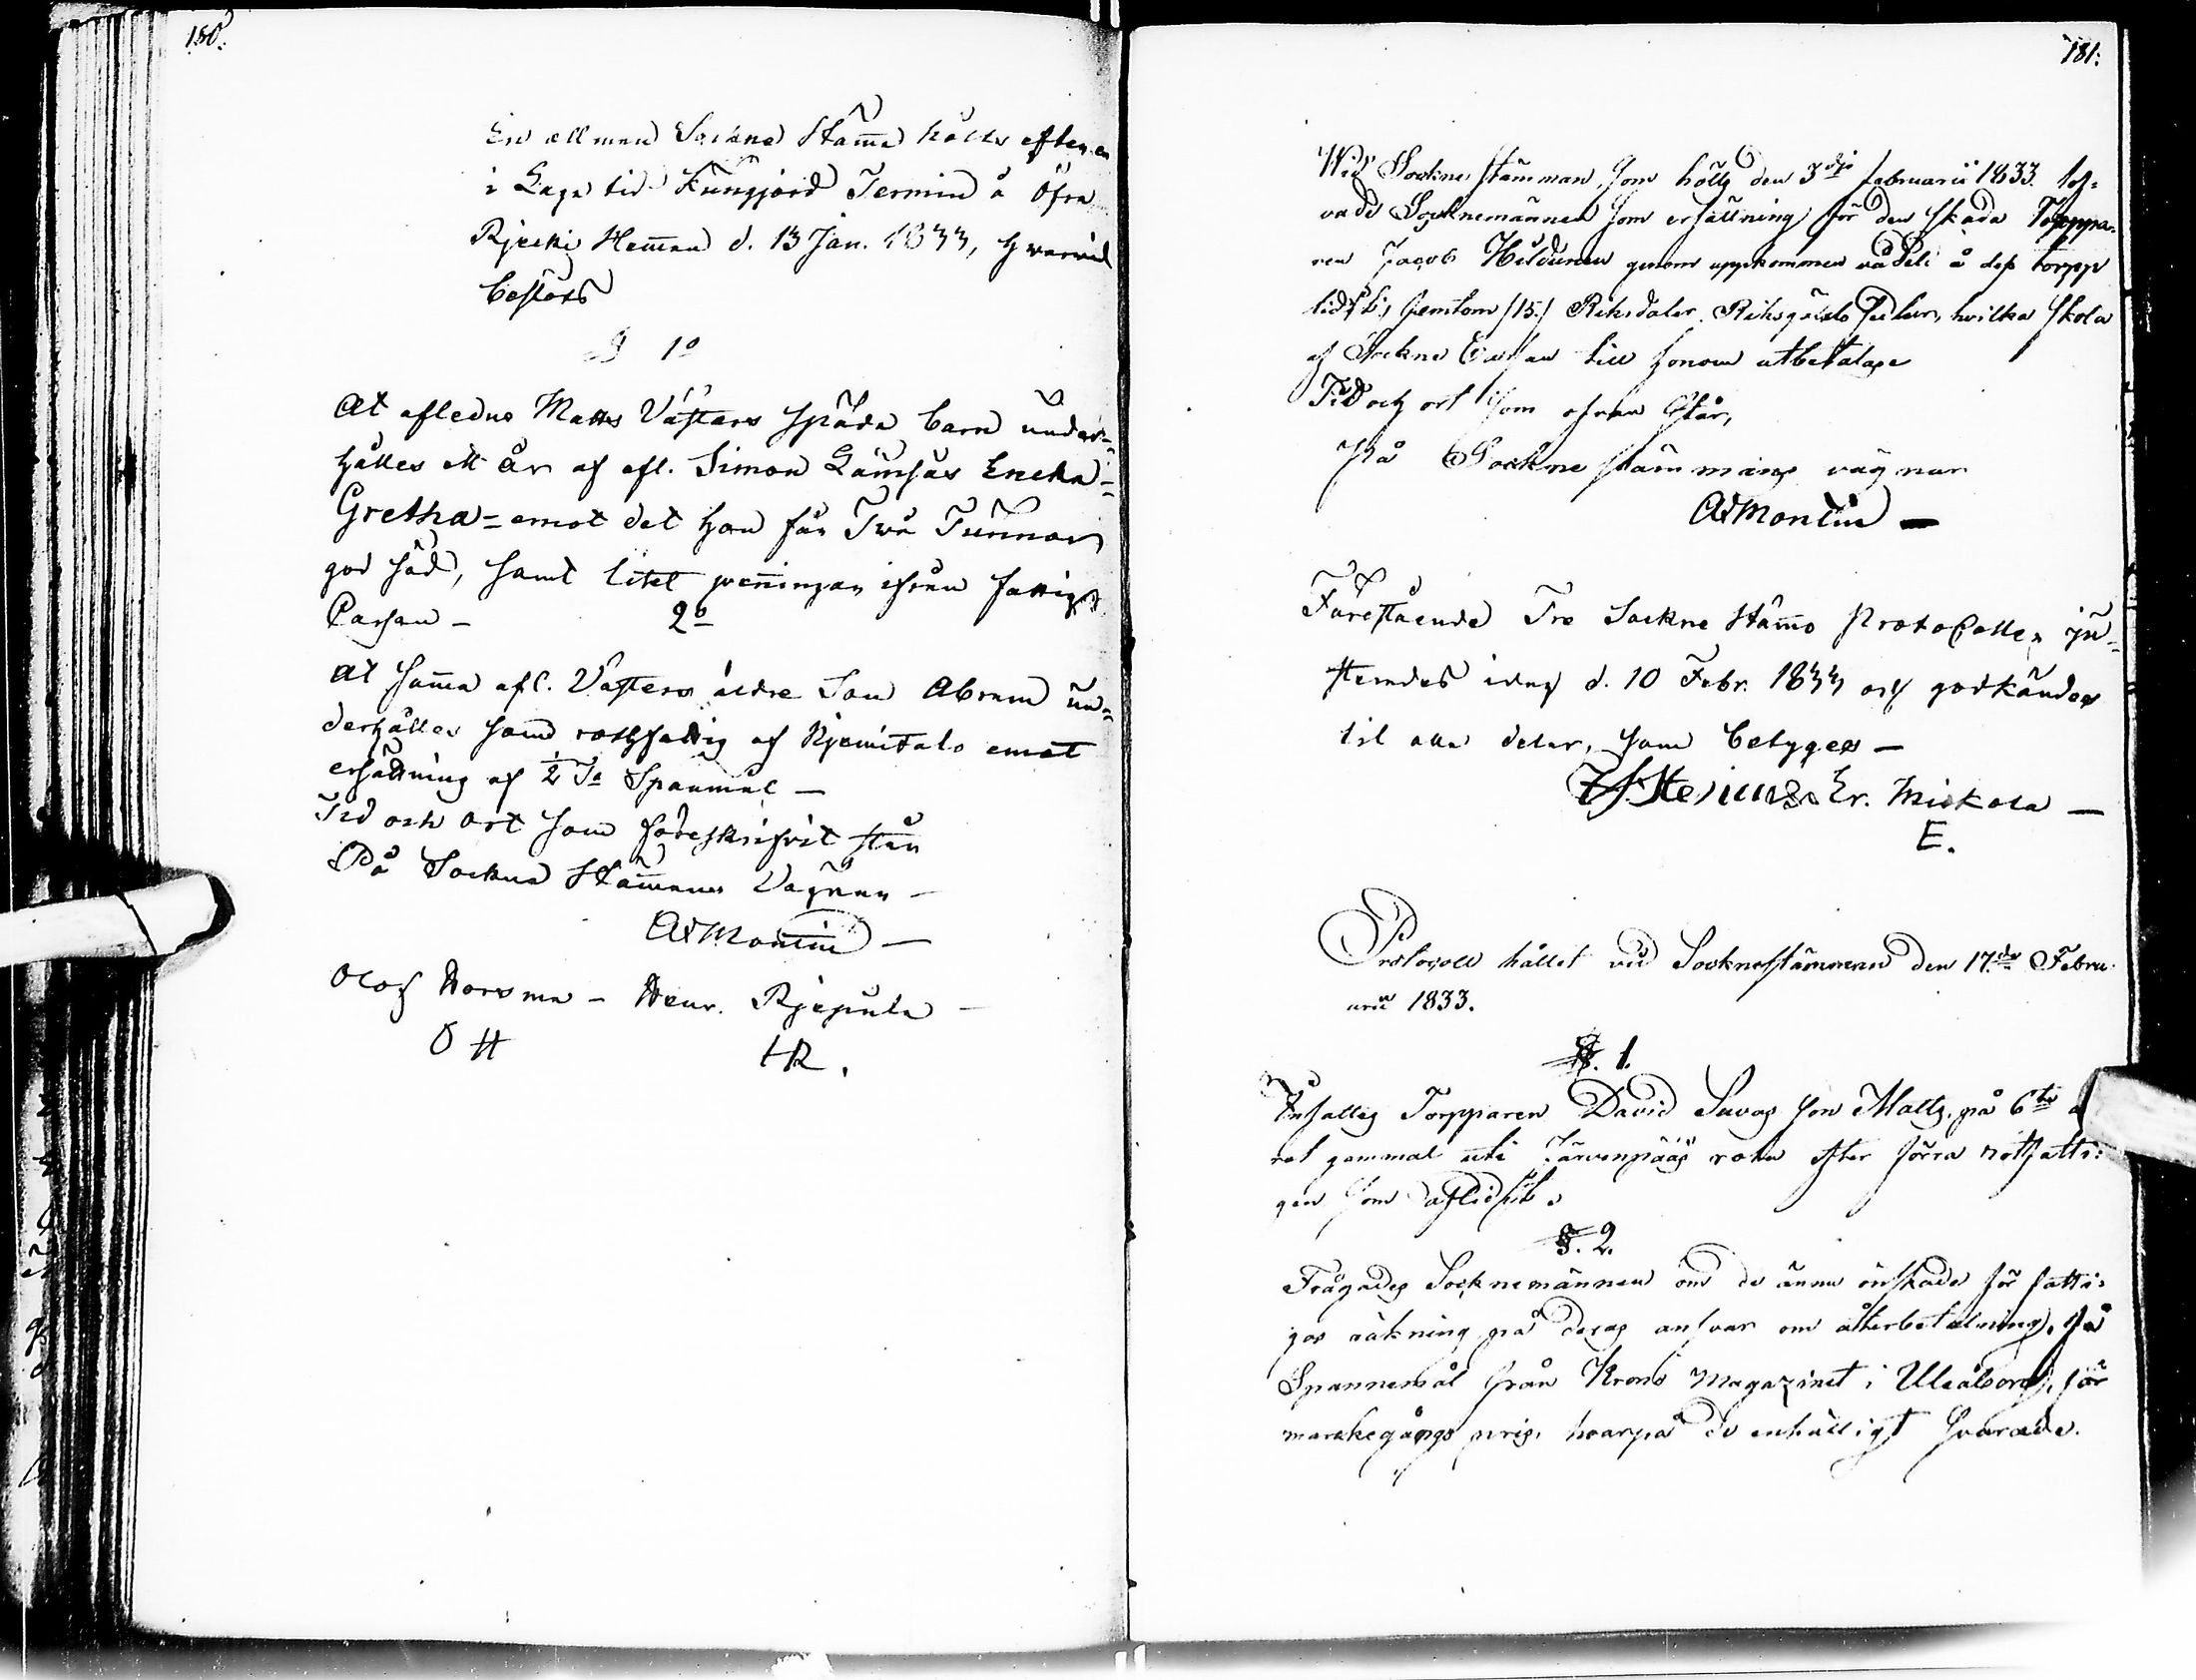 180.
En allmen Sockne Stam̃a hölts efter en
i Laga tid Kungjord Termin å Öfra
Rjecki Hem̃an d. 13 Jan. 1833, hvarvid
beslöts
§ 1º
At afledne Matts Västars späda barn under-
hålles ett år af afl. Simon Lämsäs Encka =
Gretha = emot det hon får Två Tunnor
god säd, samt litet pen̄ingar ifrån fattigs
Cassan –
2º
At sam̃a afl. Västers äldre Son Abram un=
derhålles som rothfattig af Njemitalo emot
ersättning af ½ Ta Spanmål –
Tid och Ort som föreskrifvit står
På Sockne Stam̃ans Vägnar –
AdMontin –
Olof Horsma – Henr. Rjepula –
O H HR.
181.
Wid Sockne stämman, som hölts den 3dje februarii 1833. lof-
vade Socknemännen som ersättning för den skada Torppa-
ren Jacob Hildunen genom uppkommen vådeld å dess torpp
lidit, femton /15./ Riksdaler Riksgälds sedlar, hvilka skola
af Sockne Cassan till honom utbetalas
Tid och ort som ofvan står,
På Sockne stämmans vägnar
AdMontin –
Förestående Tre Sockne Stam̃o Protocoller ju-
sterades idag d. 10 Febr. 1833 och godkändes
til alla delar, som betyges –
Er. Miekola –
E.
Protocoll hållet vid Socknestämman den 17de Febru-
arii 1833.
§. 1.
Torpparen David Savas son Matts på 6te å
ret gammal uti Järvenpääs rota efter förra rotfatti-
gen som aflidit.
§. 2.
Frågades Socknemännen om de ännu önskade för fatti-
gas räkning på deras ansvar om återbetalning, få
Spannemål från Krono Magazinet i Uleåborg, för
markegångs pris, hvarpå de enhälligt svarade.